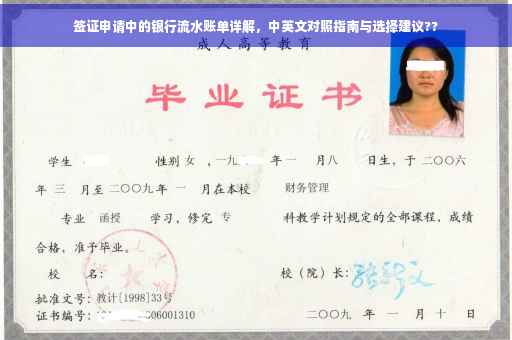 签证申请中的银行流水账单详解，中英文对照指南与选择建议??
成人高等教育
毕业证书
学生 性别 女 ，一九 年 一 月八 日生，于 二〇〇六
年 三 月至 二〇〇九 年 一 月在本校 财务管理
专业 函授 学习，修完 专 科教学计划规定的全部课程，成绩
合格，准予毕业。
校 名： 校（院）长：
批准文号：教计[1998]33号
证书编号： 06001310 二〇〇九 年 一 月 十 日